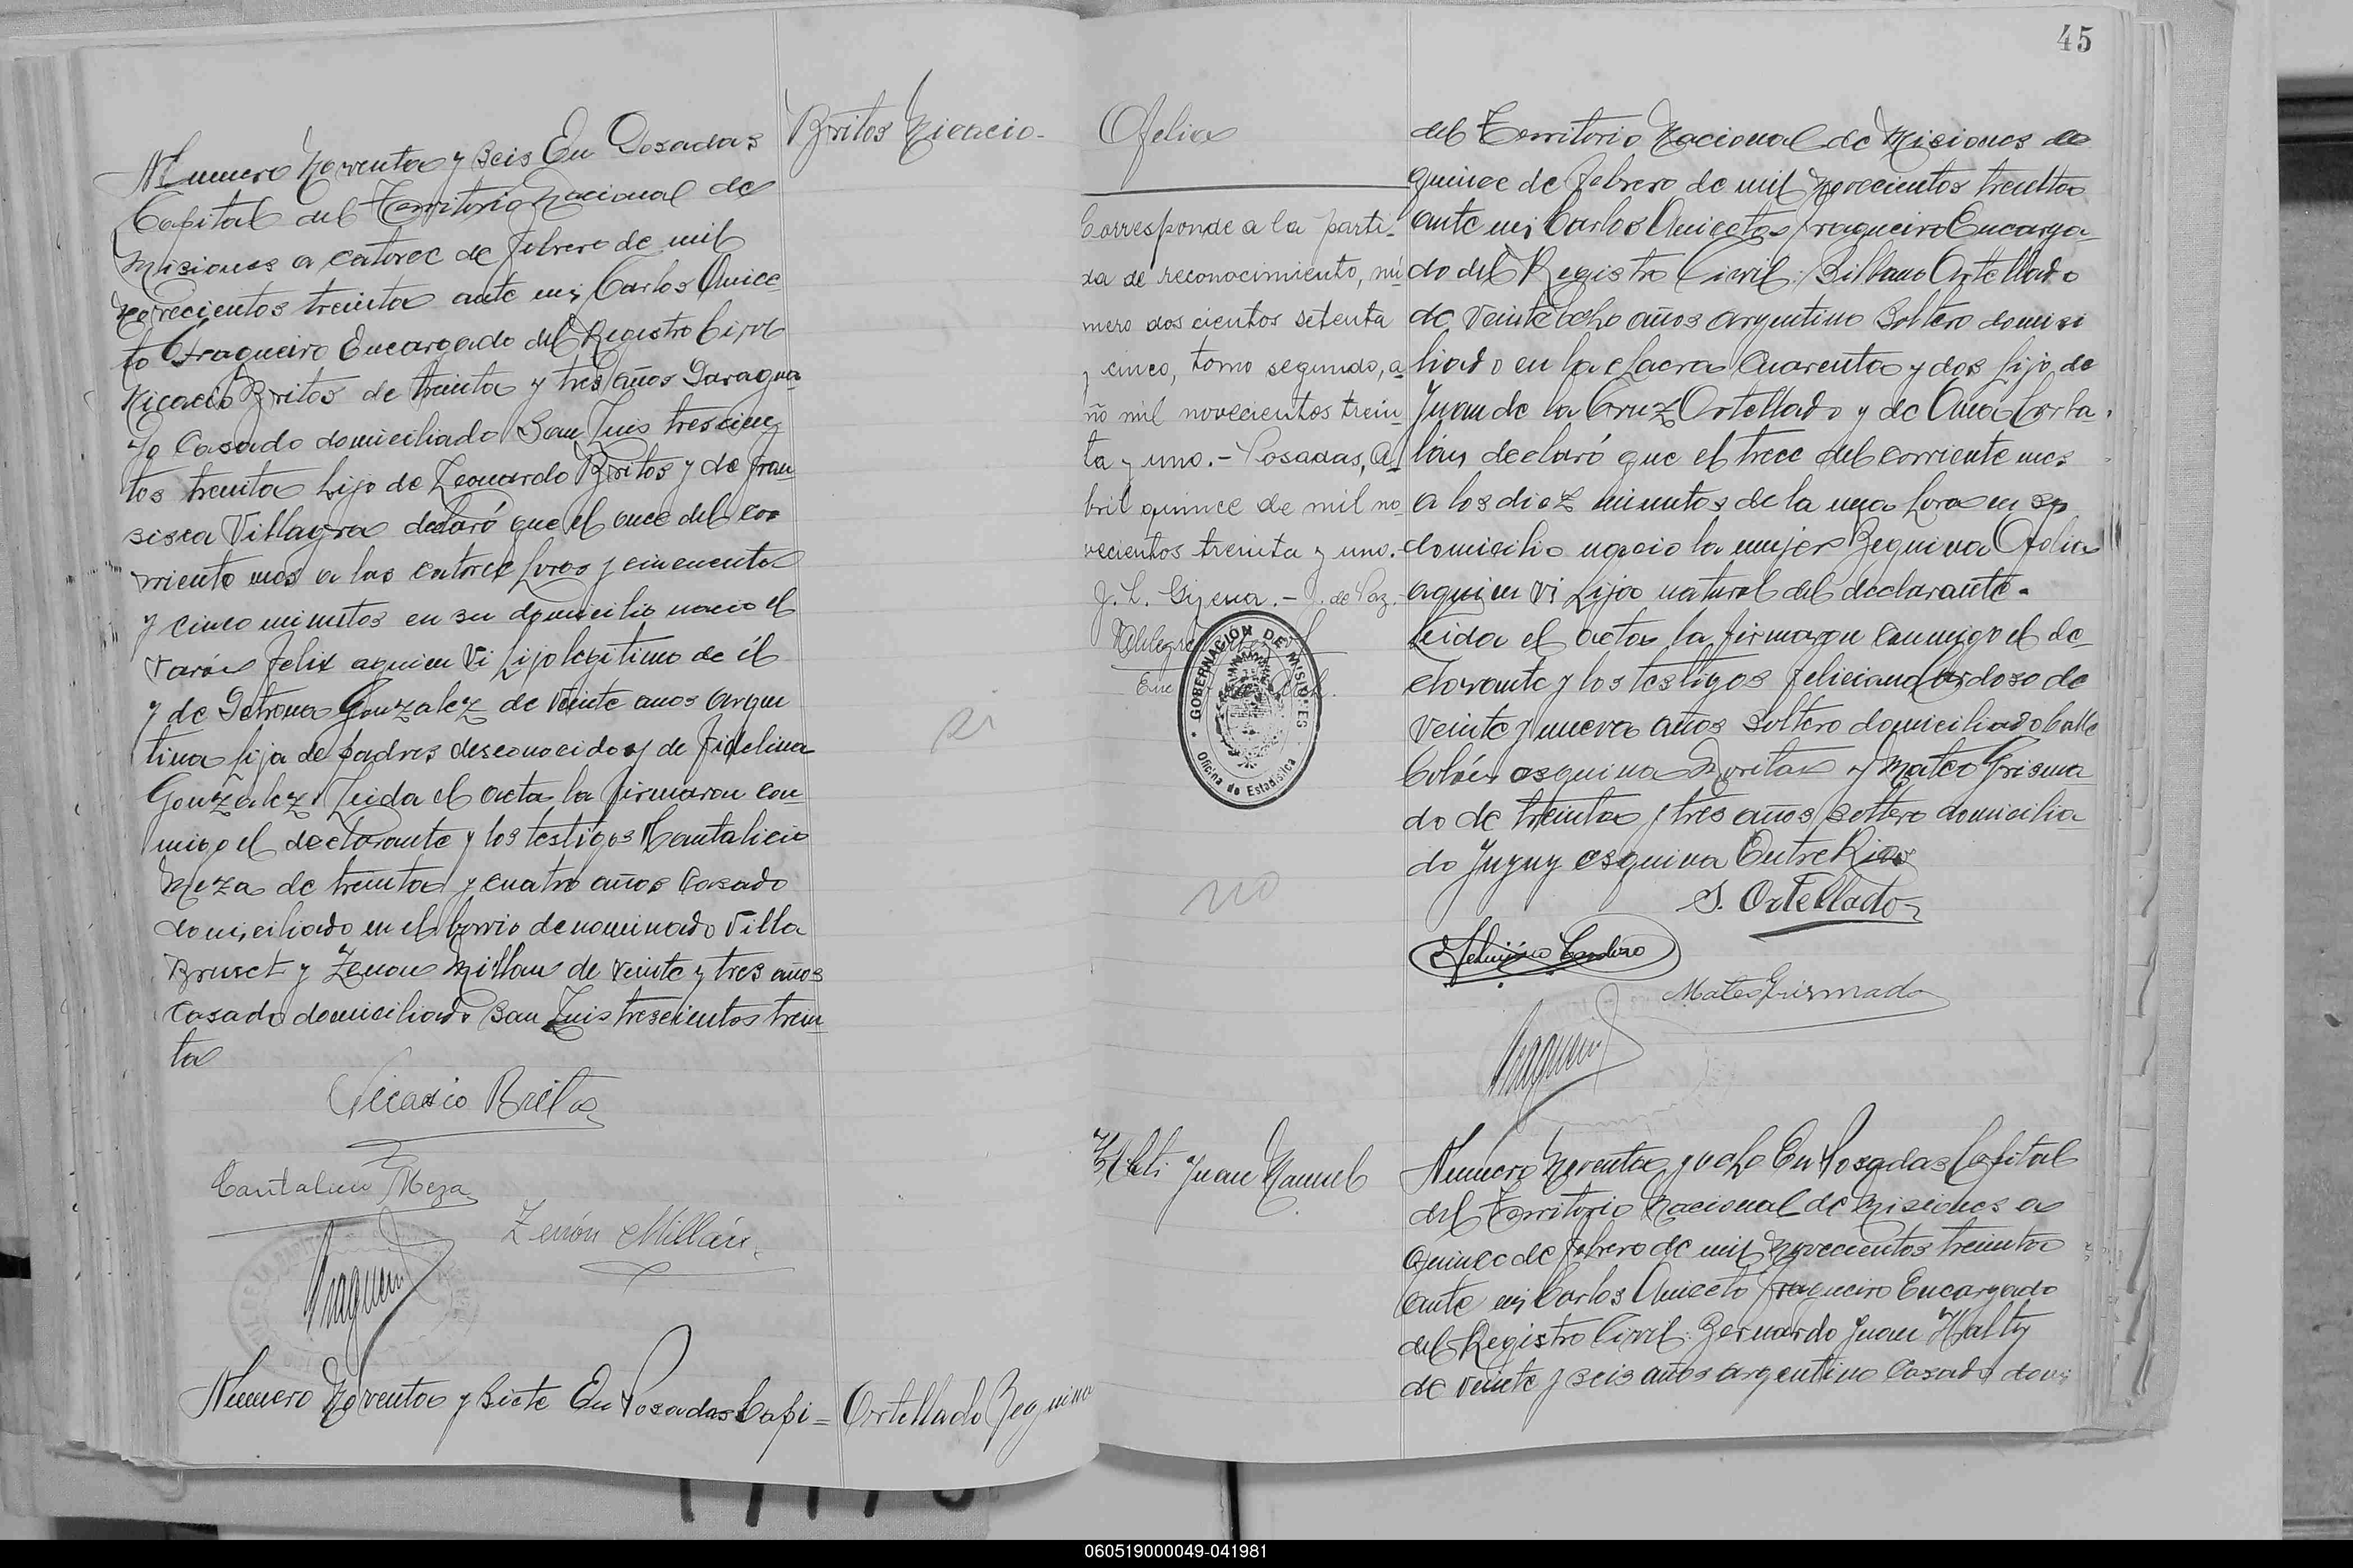 Numero Noventa y Seis En Posadas
Capital del Territorio Nacional de
Misiones a catorce de Febrero de mil
novecientos treinta ante mi Carlos Anice
to Fragueiro Encargado del Registro Civil
Nicacio Britos de treinta y tres años Paragua
yo Casado domiciliado San Luis trescien
tos treinta hijo de Leonardo Britos y de Fran
sisca Villagra declaró que el once del co
rriente mes a las catorce horas y cincuenta
y cinco minutos en su domicilio nacio el
varón Felix aquien vi hijo legitimo de él
y de Petrona Gonzalez de veinte anos argen
tina hija de padres desconocido y de Fidelina
Gonzalez. Leida el acta la firmaron con
migo el declarante y los testigos Cantalicio
Meza de treinta y cuatro años casado
domiciliado en el barrio denominado Villa
Brunet y Zenon Millan de veinte y tres años
casado domiciliado San Luis trescientos trein
ta
Nicacio Britos
Cantalicio Meza
Zenón Millán
Fragueiro
Numero Noventa y Siete En Posadas Capi=
Britos Nicacio-
Ortellado Requina
45
Ofelia
Corresponde a la parti-
da de reconocimiento, nú
mero dos cientos setenta
y cinco, tomo segundo, a
ño mil novecientos trein
ta y uno.- Posadas, A-
bril quince de mil no-
vecientos treinta y uno.
J. L. Gijena.- J. de Paz.
GOBERNACIÓN DE MISIONES
Oficina de Estadística
no
del Territorio Nacional de Misiones a
quince de Febrero de mil novecientos treinta
ante mi Carlos Aniceto Fragueiro Encarga-
do del Registro Civil: Silbano Ortellado
de veinte ocho años argentino Soltero domisi
liado en la chacra Cuarenta y dos hijo de
Juan de la Cruz Ortellado y de Ana Corta-
lán, declaró que el trece del corriente mes
a los diez minutos de la una hora en su
domicilio nacio la mujer Requina Ofelia
aquien vi hija natural del declarante.
Leida el acta la firmaron conmigo el de-
clarante y los testigos Feliciano Cardoso de
veinte y nueve años soltero domiciliado Calle
Colón esquina Moritan y Mateo Grisma
do de treinta y tres años soltero domicilia
do Jujuy esquina Entre Rios
S. Ortellado
Feliciano Cardozo
Mateo Grismado
Fragueiro
Halti Juan Manuel
Numero Noventa y ocho En Posadas Capital
del Territorio Nacional de Misiones a
Quince de Febrero de mil novecientos treinta
ante mi Carlos Aniceto Fragueiro Encargado
del Registro Civil: Bernardo Juan Halty
de veinte y seis años argentino casado domi
060519000049-041981